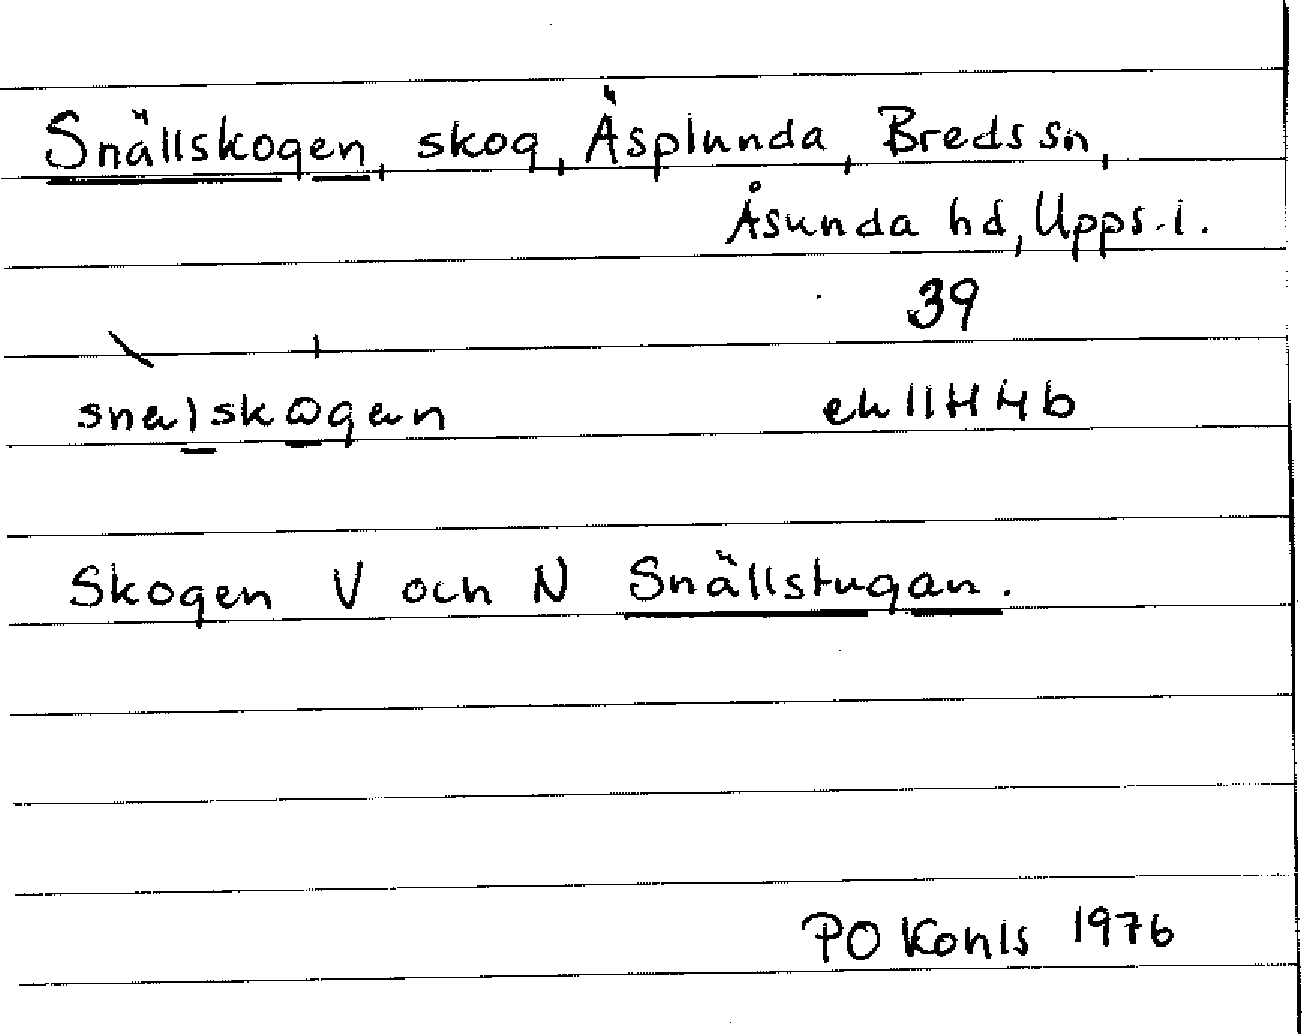 Snällskogen, skog, Äsplunda, Breds sn,
Åsunda hd, Upps. l.
39
snälskogän ek 11H4b
Skogen V och N Snällstugan.
1976